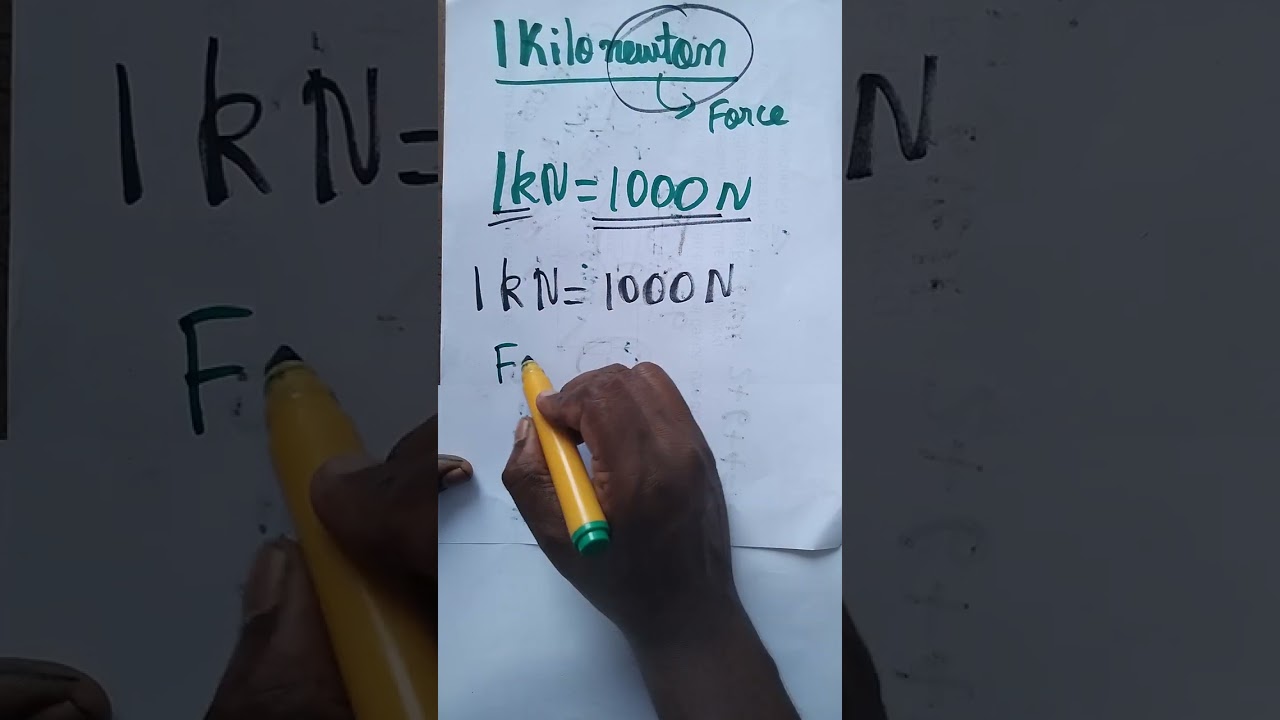 1 Kilo newton
Force
1kN = 1000 N
1 k N = 1000 N
F